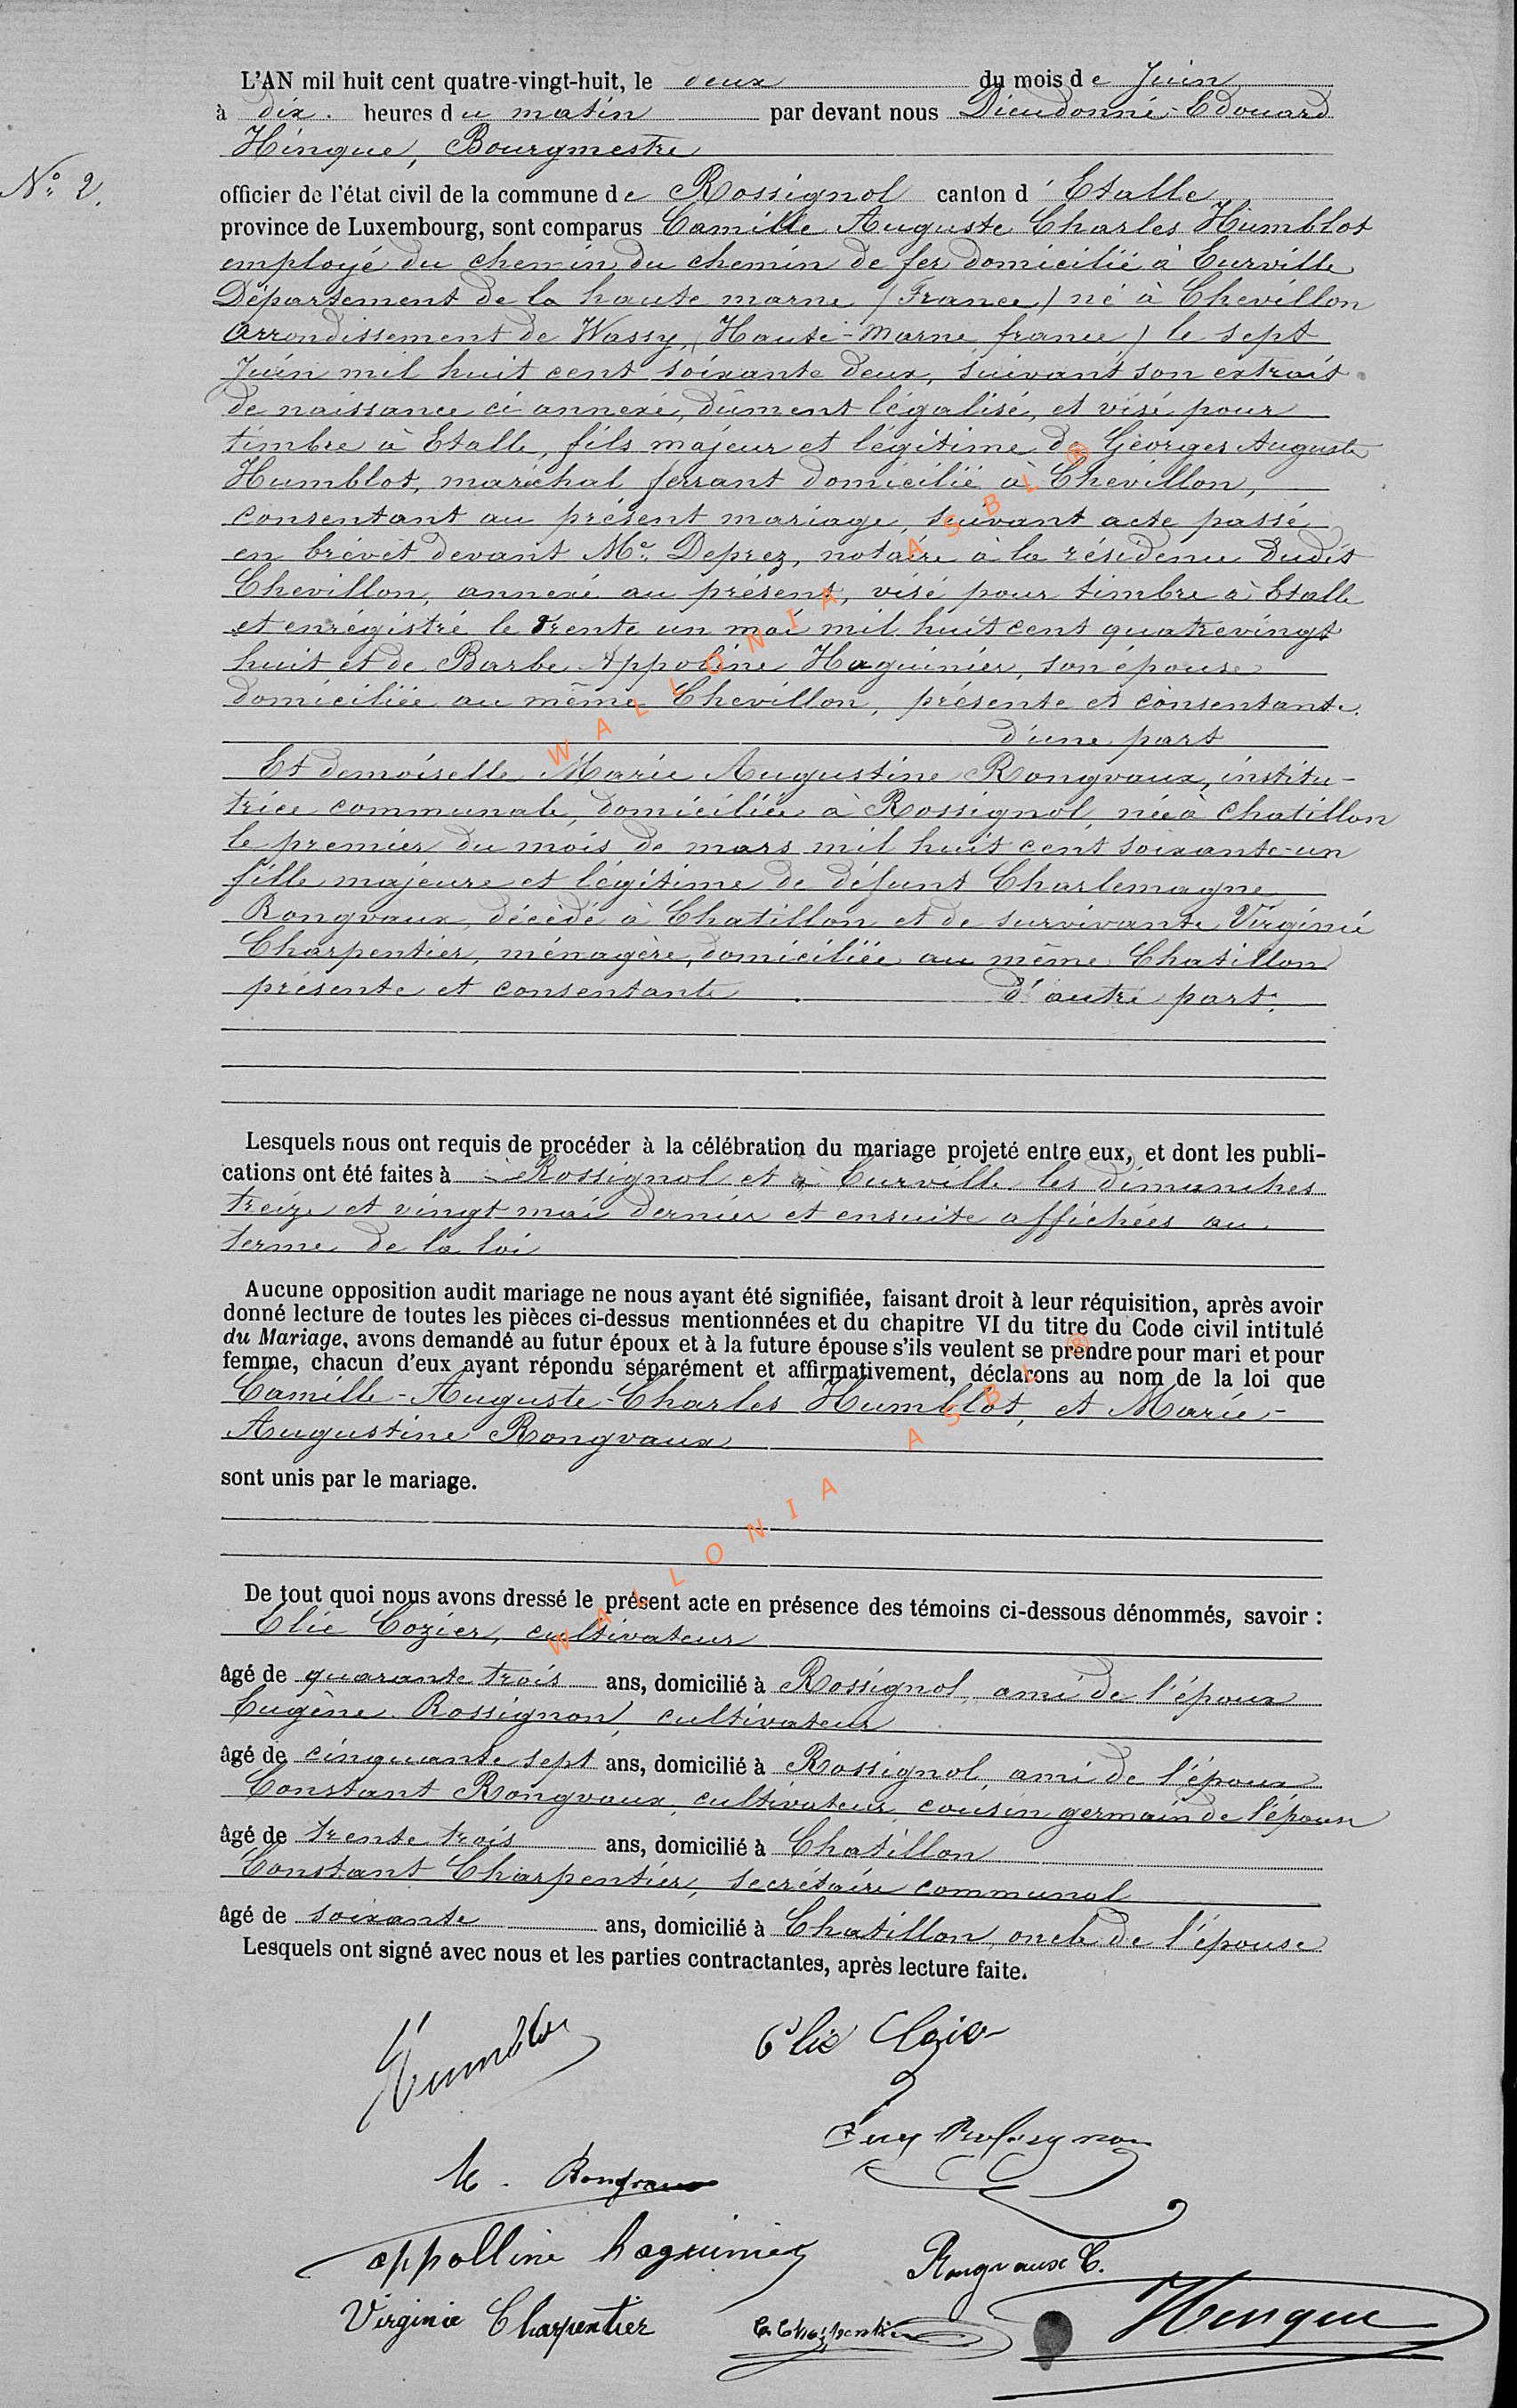 L'AN mil huit cent quatre-vingt-huit, le deux du mois de Juin
à dix. heures du matin par devant nous Dieudonné-Edouard
Hinque, Bourgmestre
N° 2.
officier de l'état civil de la commune de Rossignol canton d'Etalle
province de Luxembourg, sont comparus Camille Auguste Charles Humblot
employé du chemin du chemin de fer domicilié à Eurville
Département de la haute marne (France) né à Chevillon
arrondissement de Wassy, (Haute-Marne france) le sept
Juin mil huit cent soixante deux, suivant son extrait
de naissance ci annexé, dûment légalisé, et visé pour
timbre à Etalle, fils majeur et légitime de Georges Auguste
Humblot, maréchal ferrant domicilié à Chevillon,
consentant au présent mariage, suivant acte passé
en brévèt devant Me. Deprez, notaire à la résidence dudit
Chevillon, annexé au présent, visé pour timbre à Etalle
et enrégistré le trente un mai mil huit cent quatrevingt
huit et de Barbe Appoline Haguinier, son épouse
domiciliée au même Chevillon, présente et consentante.
d'une part
Et demoiselle Marie Augustine Rongvaux, institu-
trice communale, domiciliée à Rossignol, née à Chatillon
le premier du mois de mars mil huit cent soixante-un
fille majeure et légitime de défunt Charlemagne
Rongvaux, décédé à Chatillon et de survivante Virginie
Charpentier, ménagère, domiciliée au même Chatillon
présente et consentante d'autre part.
Lesquels nous ont requis de procéder à la célébration du mariage projeté entre eux, et dont les publi-
cations ont été faites à à Rossignol et à Eurville les dimanches
treize et vingt mai dernier et ensuite affichées au
terme de la loi
Aucune opposition audit mariage ne nous ayant été signifiée, faisant droit à leur réquisition, après avoir
donné lecture de toutes les pièces ci-dessus mentionnées et du chapitre VI du titre du Code civil intitulé
du Mariage, avons demandé au futur époux et à la future épouse s'ils veulent se prendre pour mari et pour
femme, chacun d'eux ayant répondu séparément et affirmativement, déclarons au nom de la loi que
Camille-Auguste-Charles Humblot, et Marie-
Augustine Rongvaux
sont unis par le mariage.
De tout quoi nous avons dressé le présent acte en présence des témoins ci-dessous dénommés, savoir :
Elie Cozier, cultivateur
âgé de quarante trois ans, domicilié à Rossignol, ami de l'époux
Eugène Rossignon, cultivateur
âgé de cinquante sept ans, domicilié à Rossignol, ami de l'époux
Constant Rongvaux, cultivateur, cousin germain de l'épouse
âgé de trente trois ans, domicilié à Chatillon
Constant Charpentier, secrétaire communal
âgé de soixante ans, domicilié à Chatillon, oncle de l'épouse
Lesquels ont signé avec nous et les parties contractantes, après lecture faite.
Humblot
Elie Cozier
Eug Rossignon
M. Rongvaux
appolline haguinier
Rongvaux C.
Virginie Charpentier
C. Charpentier
Hinque
WALLONIA ASBL ®
WALLONIA ASBL ®